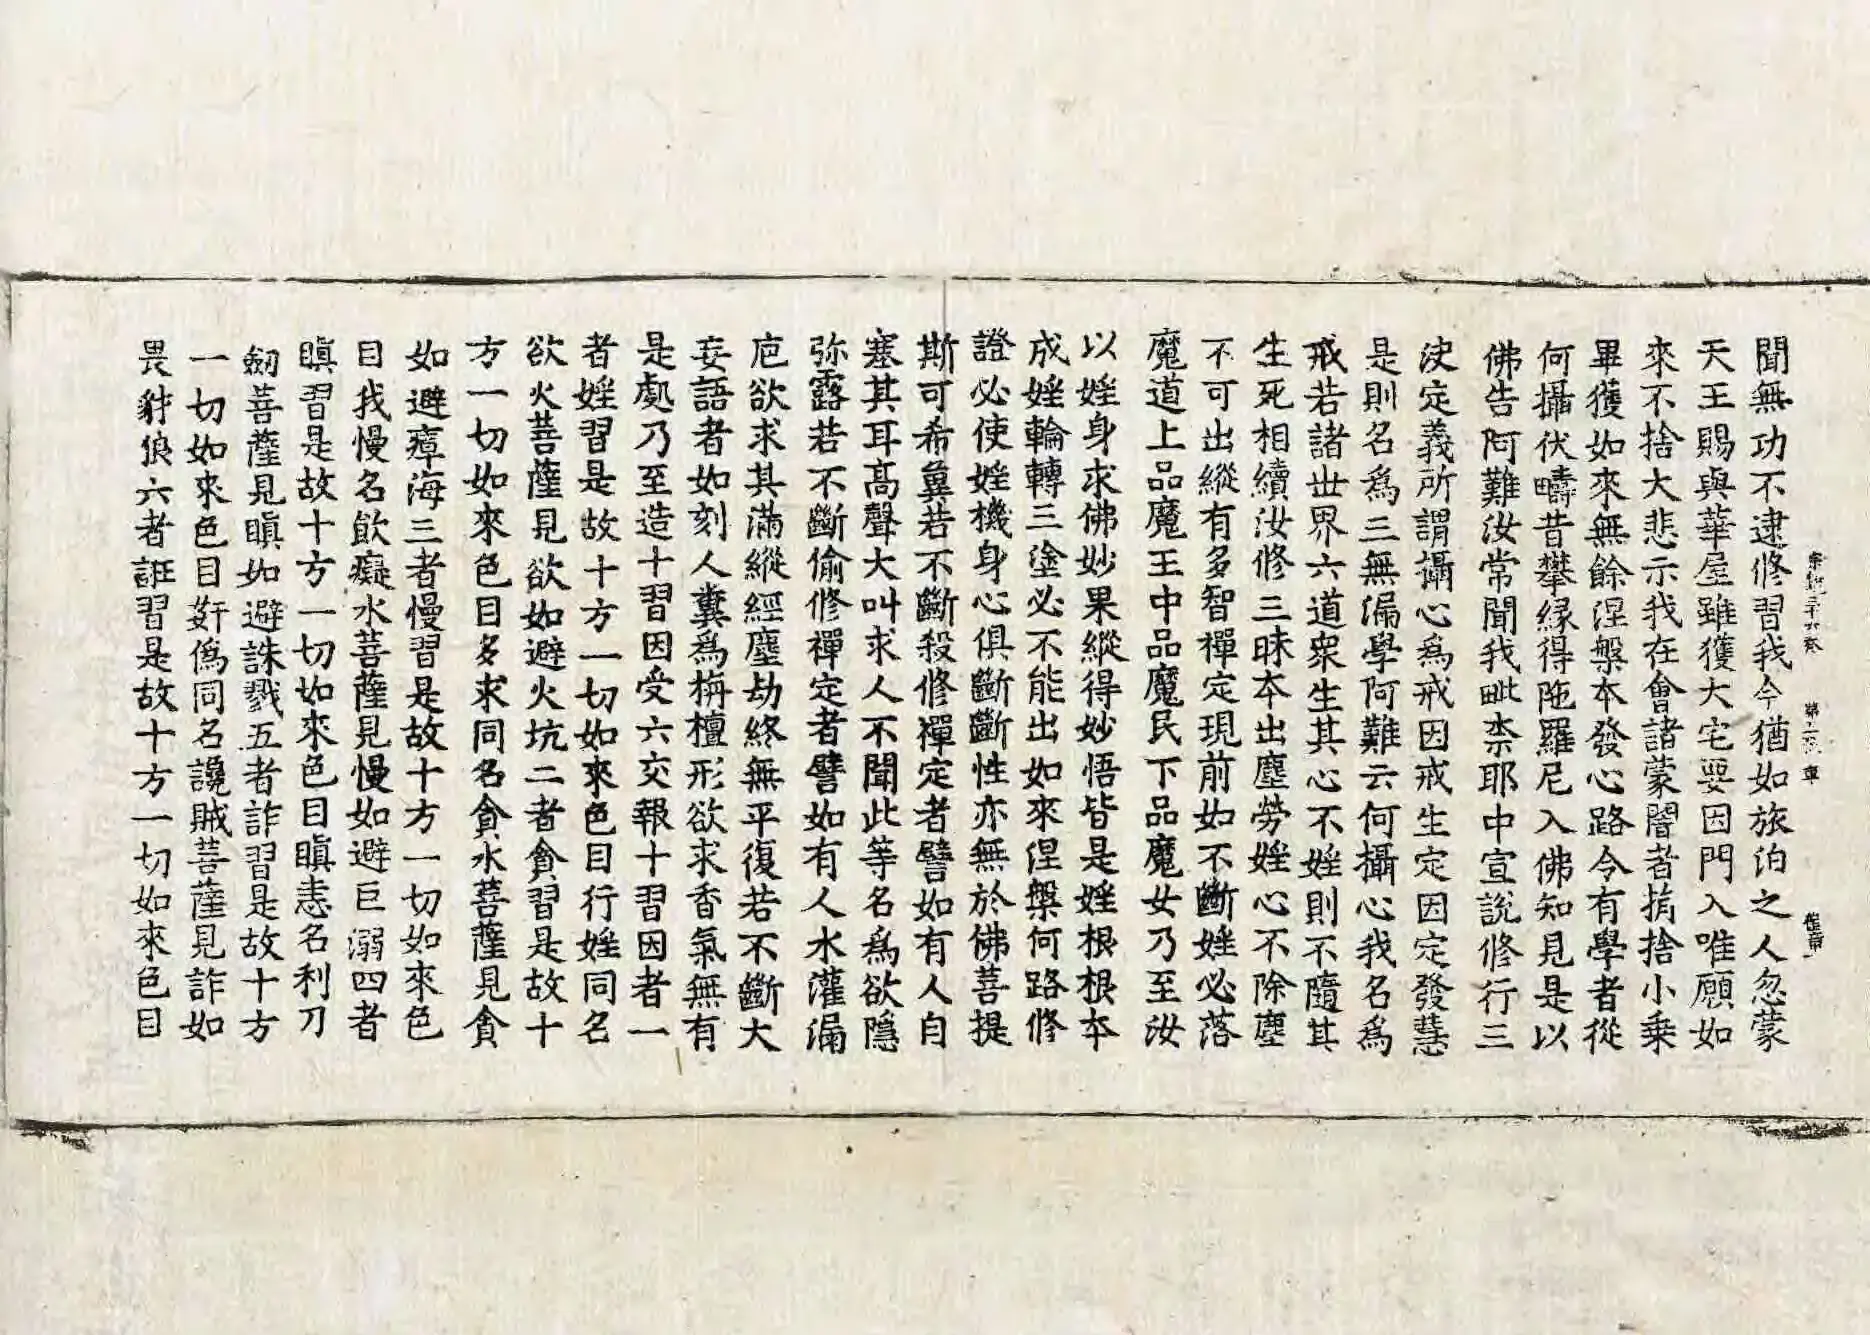 宗鏡三十六卷 第十張
聞無功不逮修習我今猶如旅泊之人忽蒙
天王賜與華屋雖獲大宅要因門入唯願如
來不捨大悲示我在會諸蒙闇者捐捨小乗
畢獲如來無餘涅槃本發心路令有學者從
何攝伏疇昔攀縁得陁羅尼入佛知見是以
佛告阿難汝常聞我毗柰耶中宣說修行三
決定義所謂攝心為戒因戒生定因定發慧
是則名為三無漏學阿難云何攝心我名為
戒若諸世界六道衆生其心不婬則不隨其
生死相續汝修三昧本出塵勞婬心不除塵
不可出縱有多智禪定現前如不斷婬必落
魔道上品魔王中品魔民下品魔女乃至汝
以婬身求佛妙果縱得妙悟皆是婬根根本
成婬輪轉三塗必不能出如來涅槃何路修
證必使婬機身心俱斷斷性亦無於佛菩提
斯可希冀若不斷殺修禪定者譬如有人自
塞其耳高聲大叫求人不聞此等名為欲隱
弥露若不斷偷修禪定者譬如有人水灌漏
巵欲求其滿縱經塵劫終無平復若不斷大
妄語者如刻人糞為栴檀形欲求香氣無有
是處乃至造十習因受六交報十習因者一
者婬習是故十方一切如來色目行婬同名
欲火菩薩見欲如避火坑二者貪習是故十
方一切如來色目多求同名貪水菩薩見貪
如避瘴海三者慢習是故十方一切如來色
目我慢名飲癡水菩薩見慢如避巨溺四者
瞋習是故十方一切如來色目瞋恚名利刀
劒菩薩見瞋如避誅戮五者詐習是故十方
一切如來色目姧僞同名讒賊菩薩見詐如
畏豺狼六者誑習是故十方一切如來色目